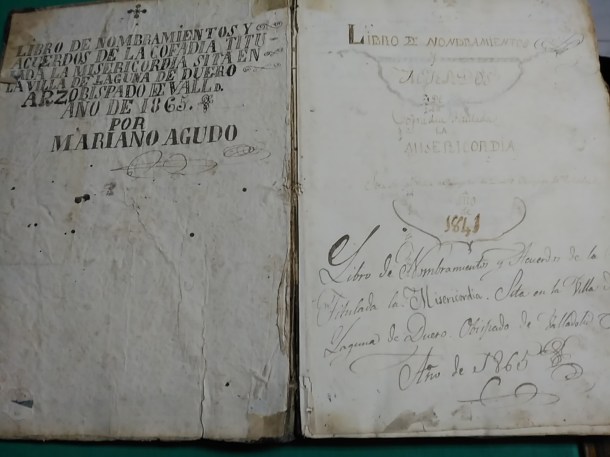 LIBRO DE NOMBRAMIENTOS Y
ACUERDOS DE LA COFADIA TITU-
LADA LA MISERICORDIA SITA EN
LA VILLA DE LAGUNA DE DUERO
ARZOBISPADO DE VALLD.
AÑO DE 1865.
POR
MARIANO AGUDO
LIBRO DE NONBRAMIENTOS
LA
MISERICORDIA
1841
Libro de Nombramientos y Acuerdos de la
Titulada la Misericordia. Sita en la Villa de
Laguna de Duero. Obispado de Valladolid
Año de 1865